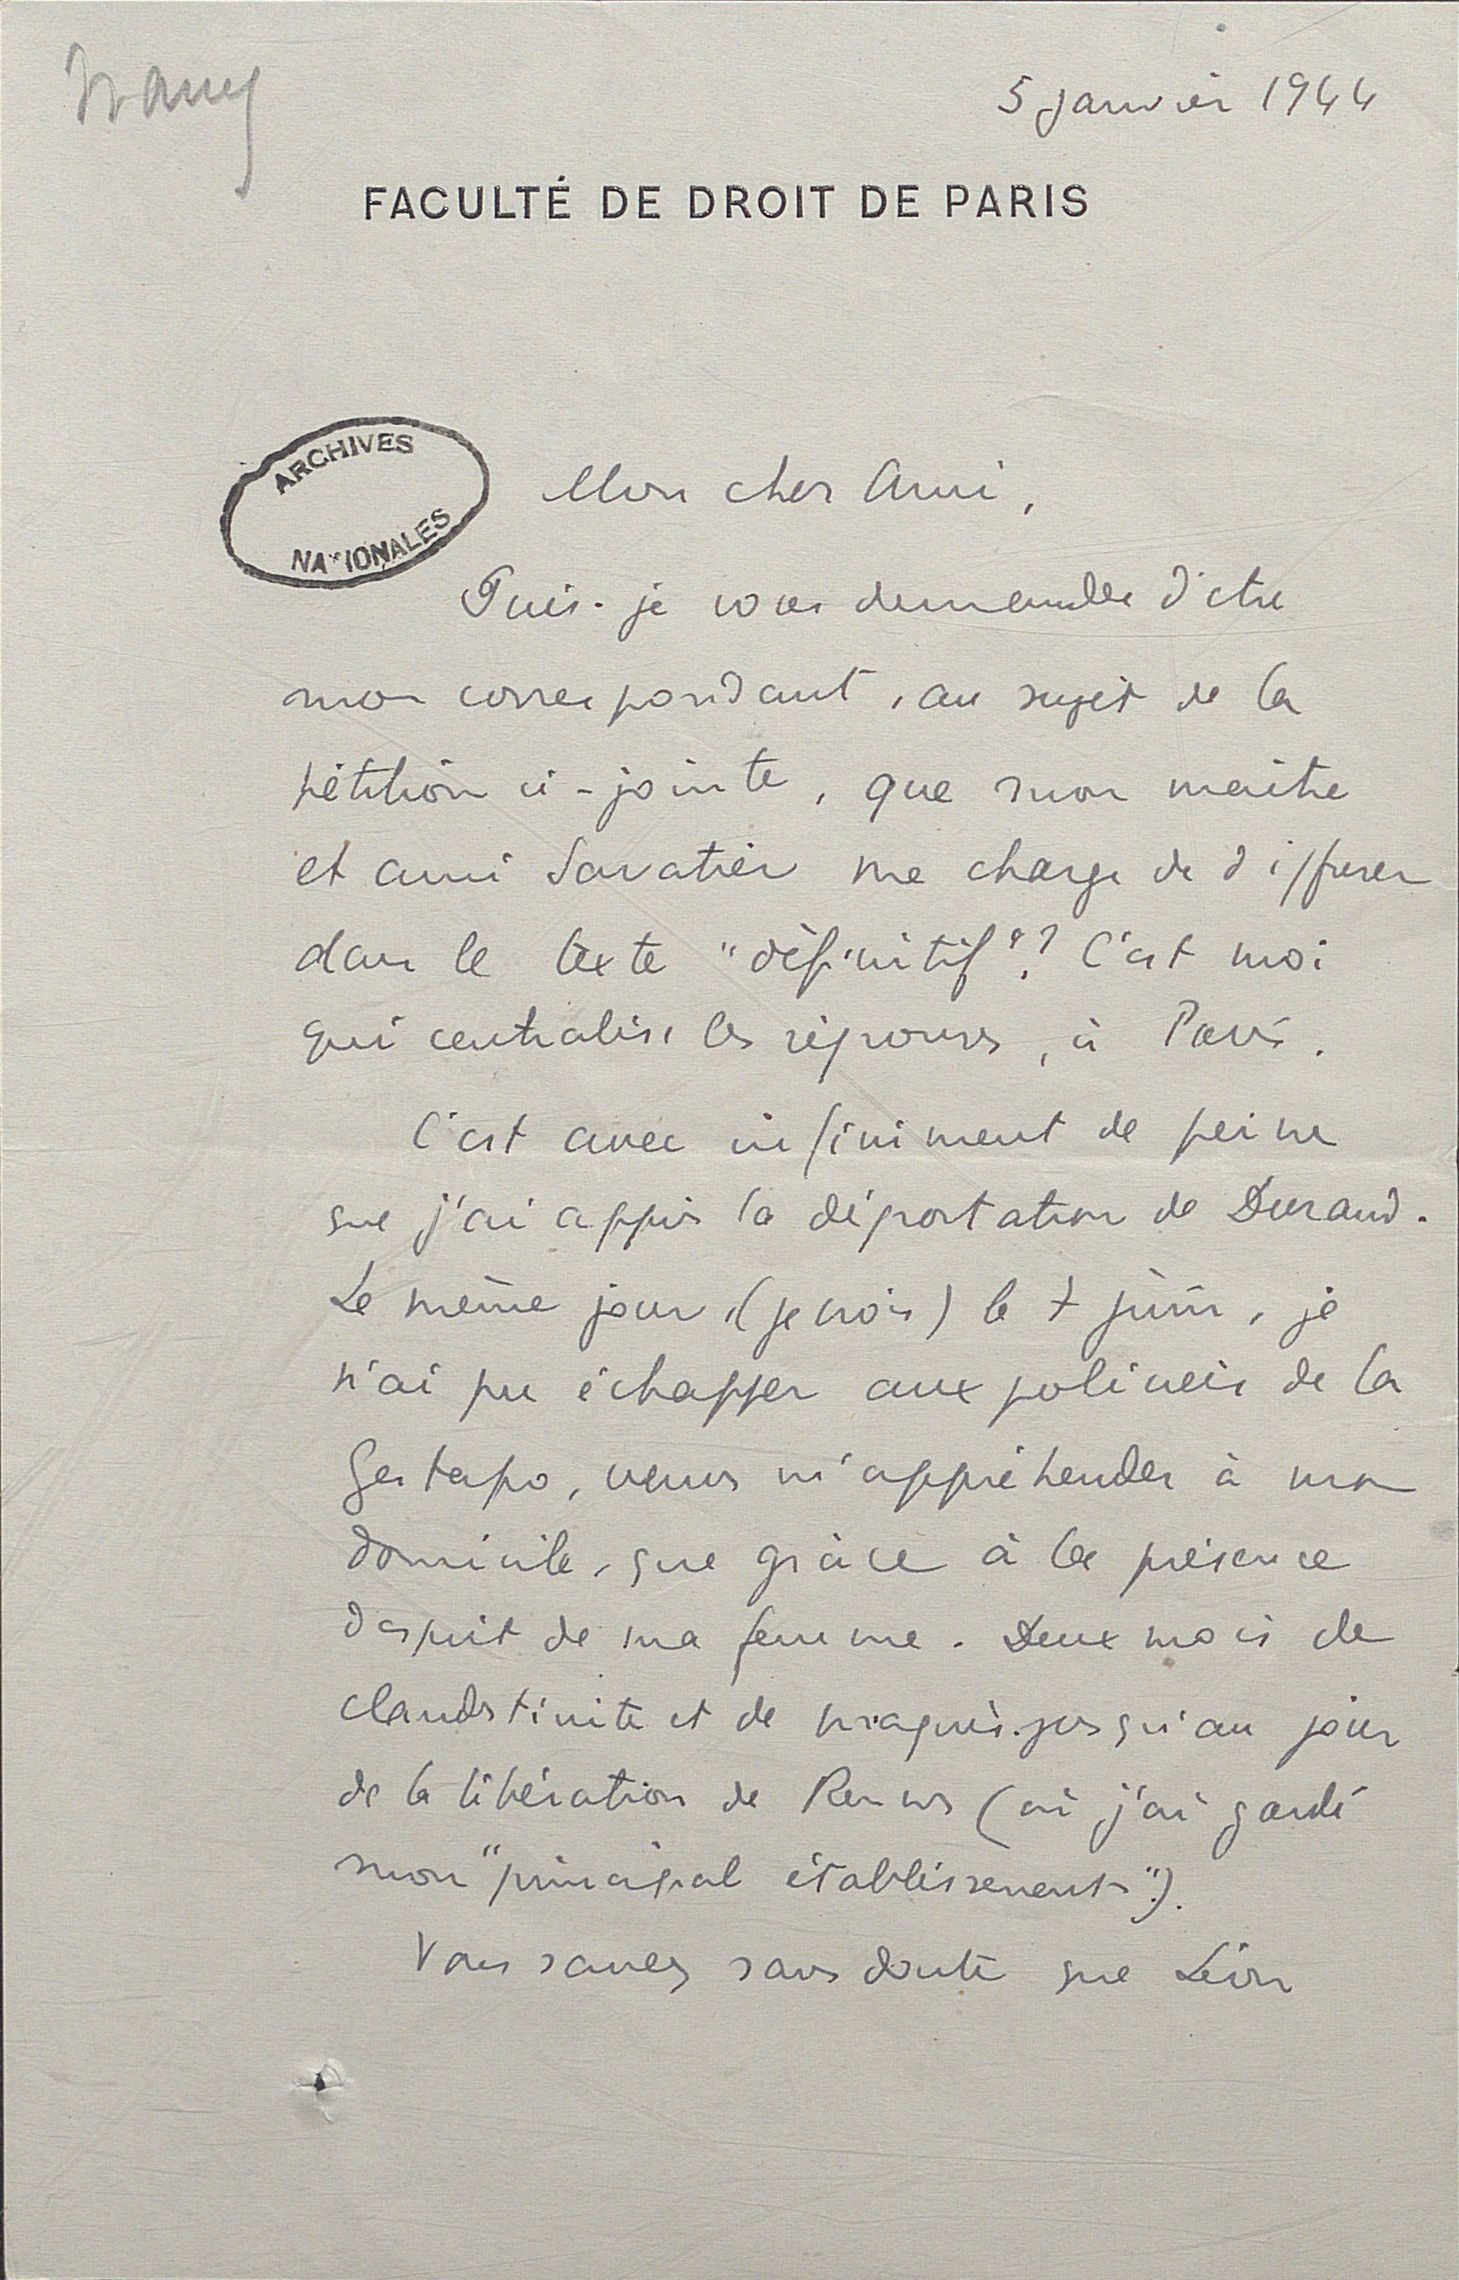 Nancy
5 janvier 1944
FACULTÉ DE DROIT DE PARIS
ARCHIVES
NATIONALES
Mon cher Ami,
Puis-je vous demander d'être
mon correspondant, au sujet de la
pétition ci-jointe, que mon maître
et ami Savatier me charge de diffuser
dans le texte "définitif"? C'est moi
qui centralise les réponses, à Paris.
C'est avec infiniment de peine
que j'ai appris la déportation de Durand.
Le même jour, (je crois) le 7 juin, je
n'ai pu échapper aux policiers de la
Gestapo, venus m'appréhender à mon
domicile, que grâce à la présence
d'esprit de ma femme. Deux mois de
clandestinité et de maquis jusqu'au jour
de la libération de Rennes (où j'ai gardé
mon "principal établissement").
Vous savez sans doute que Léon